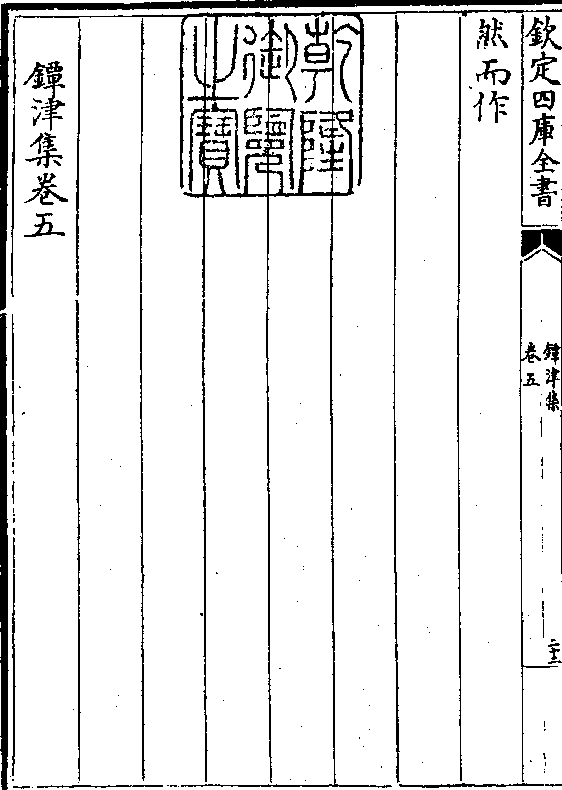 欽定四庫全書
鐔津集
卷五
二十三
然而作
乾隆
御覽
之寶
鐔津集卷五